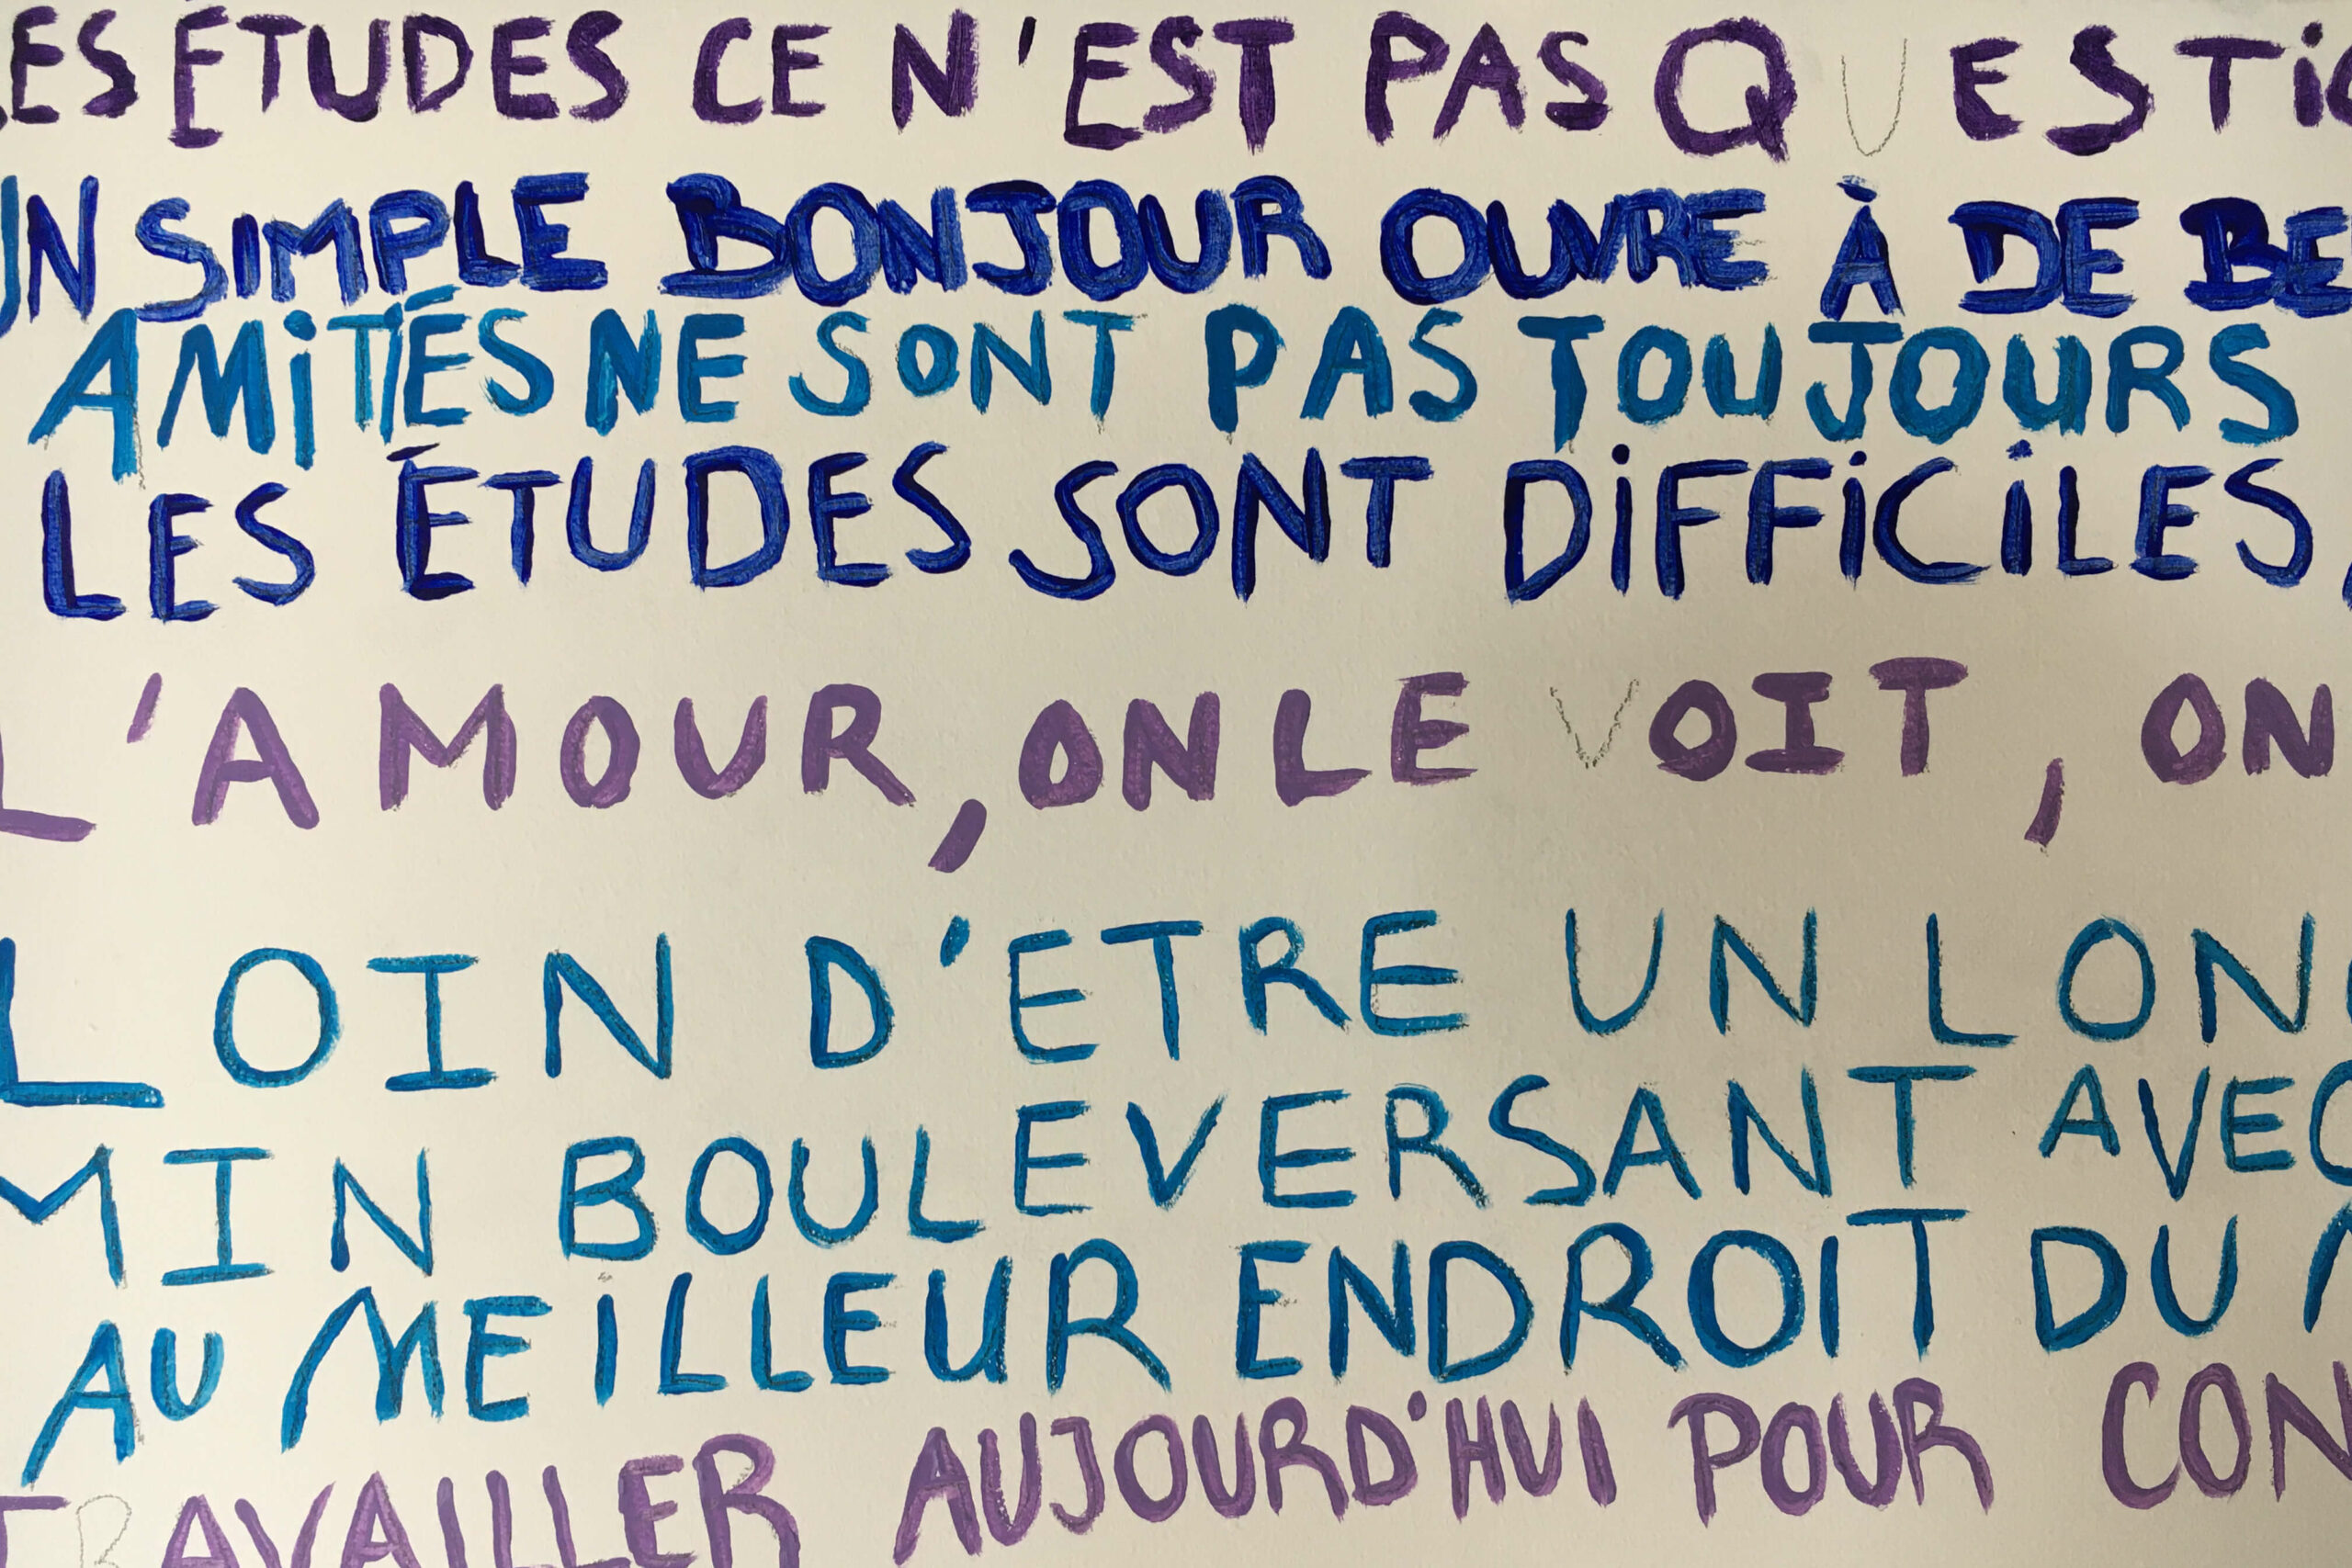 LES ÉTUDES CE N'EST PAS QUESTIO
UN SIMPLE BONJOUR OUVRE À DE BE
AMITIÉS NE SONT PAS TOUJOURS
LES ÉTUDES SONT DIFFICILES,
L'AMOUR, ON LE VOIT, ON
LOIN D'ETRE UN LONG
MIN BOULEVERSANT AVEC
AU MEILLEUR ENDROIT DU
TRAVAILLER AUJOURD'HUI POUR CON